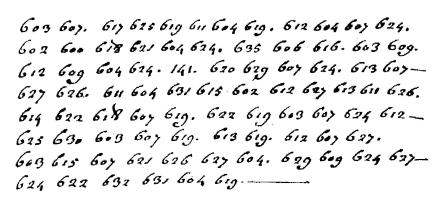 603 607. 617 625 619 611 604 619. 612 604 607 624.
602 600 618 621 604 624. 635 606 616. 603 609.
612 609 604 624. 141. 620 629 607 624. 613 607—
627 626. 611 604 631 615 602 612 627 613 611 626.
614 622 618 607 619. 622 619 603 607 624 612—
625 630 603 607 619. 613 619. 612 607 627.
603 615 607 621 626 627 604. 629 609 624 627—
624 622 632 631 604 619.